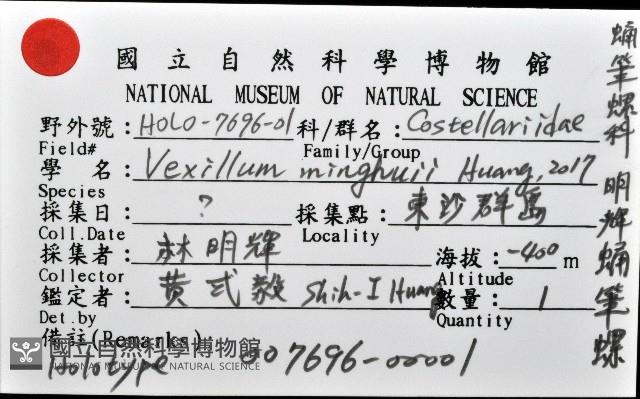 國立自然科學博物館
NATIONAL MUSEUM OF NATURAL SCIENCE
野外號: HOLO-7696-01 科/群名: Costellariidae
Field# Family/Group
學 名: Vexillum minghuii Huang, 2017
Species
採集日: ? 採集點: 東沙群島
Coll.Date Locality
採集者: 林明輝 海拔: -400 m
Collector Altitude
鑑定者: 黄式毅 Shih-I Huang 數量: 1
Det.by Quantity
備註(Remarks)
國立自然科學博物館
NATIONAL MUSEUM OF NATURAL SCIENCE
Holotype 007696-00001
蛹筆螺科 明輝蛹筆螺